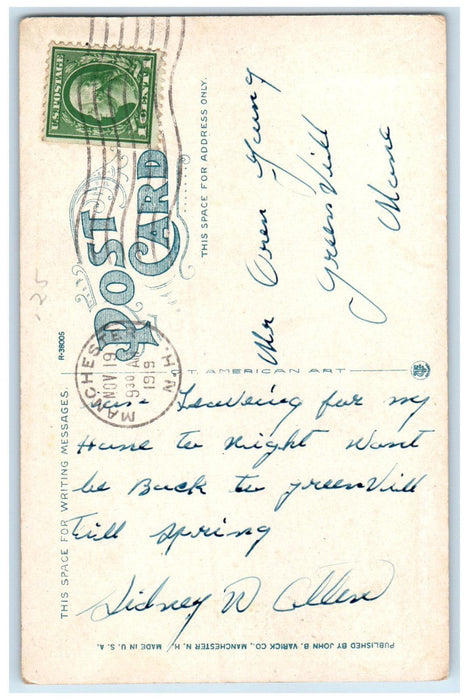 U.S. POSTAGE
1 CENT 1
POST CARD
THIS SPACE FOR ADDRESS ONLY.
MANCHESTER
N.H.
NOV 19
930 A
1919
R-38005
.25
C.T. AMERICAN ART
THIS SPACE FOR WRITING MESSAGES.
Leaveing for my
Home to Night Wont
be Back to greenVill
till spring
Sidney W Allen
Mr Oren Young
GreenVill
Mane
PUBLISHED BY JOHN B. VARICK CO., MANCHESTER N. H. MADE IN U. S. A.